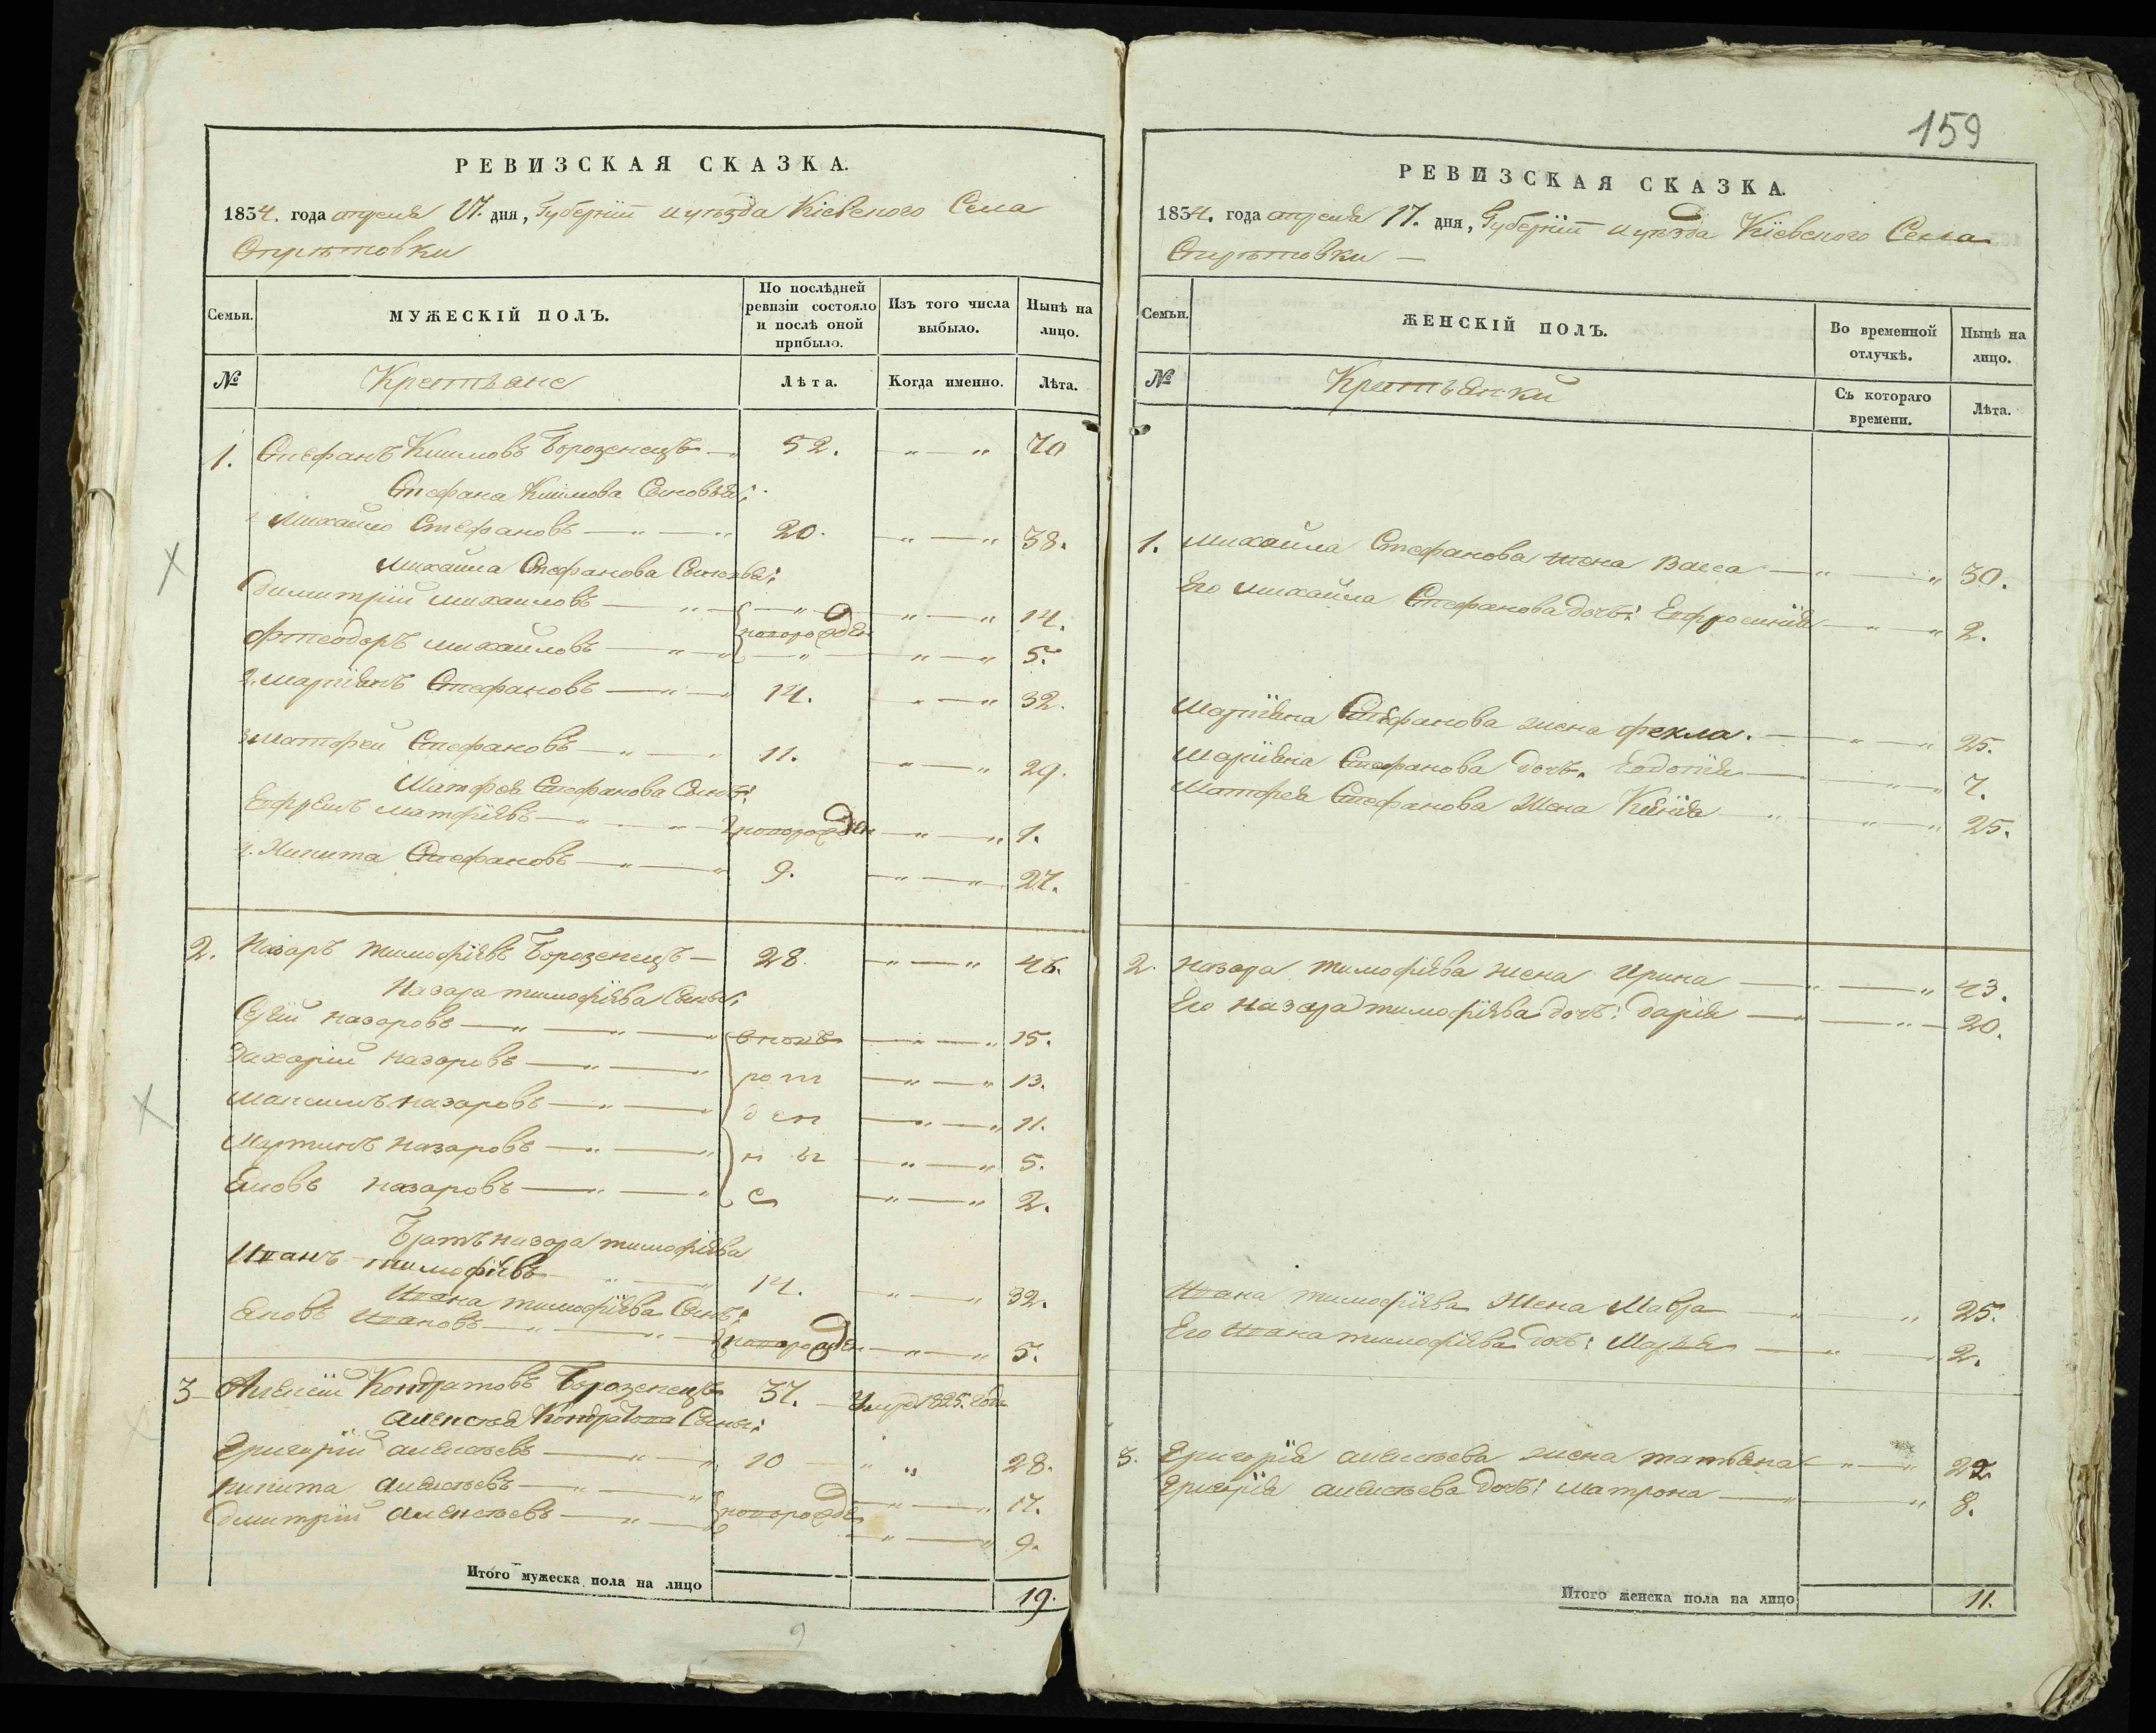 159
РЕВИЗСКАЯ СКАЗКА.
1834. года апреля 17. дня, Губернïи и уѣзда Кiевского Села
МУЖЕСКІЙ ПОЛЪ.
Семьи.
По послѣдней ревизіи состояло и послѣ оной прибыло.
Изъ того числа выбыло.
Нынѣ на лицо.
№
Крестьяне
Лѣта.
Когда именно.
Лѣта.
1. Стефанъ Климовъ Борозенецъ 52. 70
Стефана Климова Сыновья:
1. Михайло Стефановъ 20. 38.
Михайла Стефанова Сыновья:
Димитрïй Михаиловъ 14.
новорожден
Фтеодоръ Михайловъ 5.
2. Марïянъ Стефановъ 14. 32.
3. Матфей Стефановъ 11. 29.
Матфея Стефанова Сынъ:
Ефремъ Матфïявъ новорожден 1.
4. Никита Стефановъ 9. 27.
2. Назаръ Тимофïявъ Борозенецъ 28. 46.
Назара Тимофïява Сыны:
Сергïй Назаровъ 15.
Захарïй Назаровъ 13.
Максимъ Назаровъ 11.
Мартинъ Назаровъ 5.
Яковъ Назаровъ 2.
Братъ Назара Тимофïява
Иванъ Тимофïевъ 14. 32.
Ивана Тимофïява Сынъ:
Яковъ Ивановъ новорожден 5.
3 Алексïй Кондратовъ Борозенецъ 37. Умре 1825. года
Алексея Кондратова Сыны:
Григорïй Алексѣевъ 10 28.
Никита Алексѣевъ 17.
новорожде
Дмитрïй Алексѣевъ 9.
Итого мужеска пола на лицо 19.
9
РЕВИЗСКАЯ СКАЗКА.
1834. года апреля 17. дня, Губернïи и уѣзда Кïевского Села
Семьи.
ЖЕНСКІЙ ПОЛЪ.
Во временной отлучкѣ.
Нынѣ на лицо.
№
Крестьянки
Съ котораго времени.
Лѣта.
1. Михайла Стефанова жена Васса 30.
Его Михайла Стефанова дочь: Евфросинïя 2.
Марïяна Стефанова жена Фекла. 25.
Марïяна Стефанова дочь. Евдокïя 7.
Матфея Стефанова Жена Ксенïя 25.
2. Назара Тимофïява жена Ирина 43.
Его Назара Тимофïява дочь: Дарïя 20.
Ивана Тимофïява Жена Мавра 25.
Его Ивана Тимофïява дочь: Марья 2.
3. Григорïя Алексѣева жена Татьяна 22.
Григорïя Алексѣева дочь: Матрона 8.
Итого женска пола на лицо 11.